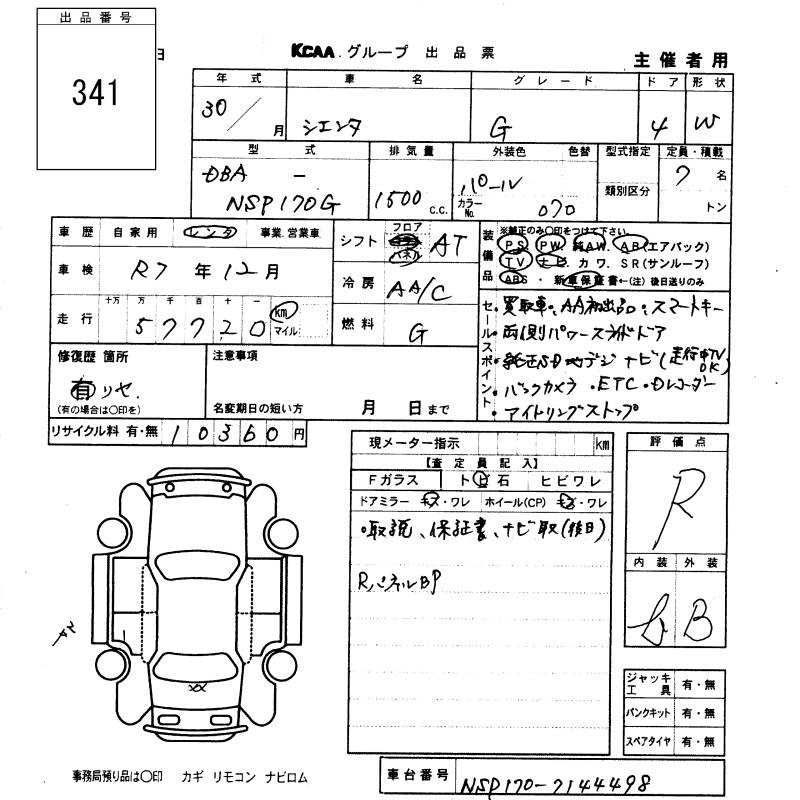 出品番号
341
日
KCAA グループ 出品票
主催者用
年式 車名 グレード ドア 形状
30/ 月 シエンタ G 4 W
型式 排気量 外装色 色替 型式指定 定員・積載
DBA - パール 7 名
NSP170G 1500 c.c. カラーNo. 070 類別区分 トン
車歴 自家用 レンタ 事業.営業車
車検 R7 年 12 月
十万 万 千 百 十 一
走行 5 7 7 2 0 km マイル
シフト フロア コラム パネル AT
冷房 AA/C
燃料 G
装備品 ※純正のみ○印をつけて下さい
PS PW. 純AW. AB(エアバック)
TV ナビ カワ. SR(サンルーフ)
ABS・新車保証書←(注)後日送りのみ
セールスポイント
・買取車・AA初出品・スマートキー
・両側パワースライドドア
・純正SD地デジナビ(走行中TVOK)
・バックカメラ・ETC・Dレコーダー
・アイドリングストップ
修復歴 箇所
有 リヤ.
(有の場合は○印を)
注意事項
名変期日の短い方 月 日まで
リサイクル料 有・無 10360円
現メーター指示 km
【査定員記入】
Fガラス トビ石 ヒビワレ
ドアミラー キズ・ワレ ホイール(CP) キズ・ワレ
・取説、保証書、ナビ取(後日)
RパネルBP
評価点
R
内装 外装
b B
A2
XX
ジャッキ工具 有・無
パンクキット 有・無
スペアタイヤ 有・無
事務局預り品は○印 カギ リモコン ナビロム
車台番号 NSP170-7144498